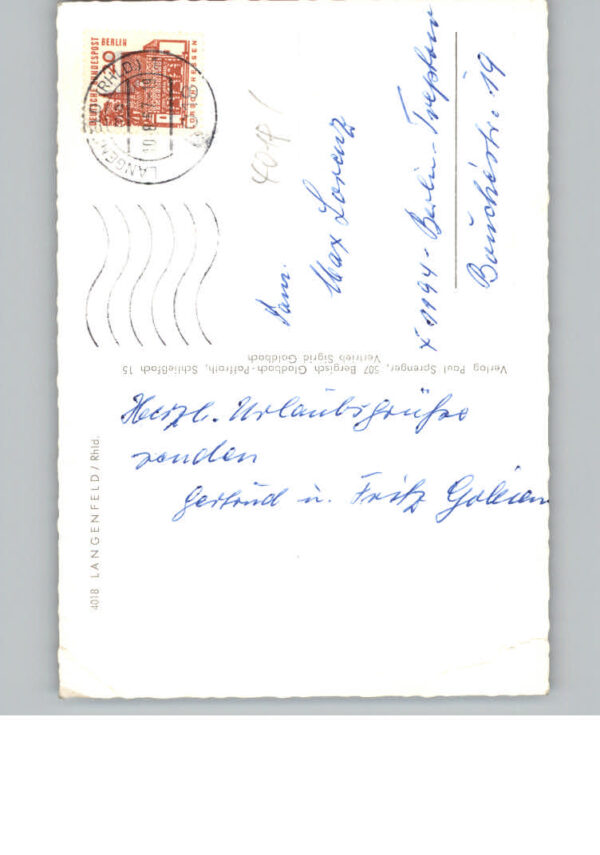 Herzl. Urlaubsgrüße
senden
Gertrud u. Fritz
Fam.
Max Lorenz
X 1194 - Berlin - Treptow
Bouchéstr. 19
4018 LANGENFELD / Rhld.
Verlag Paul Sprenger, 507 Bergisch Gladbach-Paffrath, Schließfach 15
Vertrieb Sigrid Goldbach
DEUTSCHE BUNDESPOST BERLIN
LORSCH/HESSEN
LANGENFELD (RHLD)